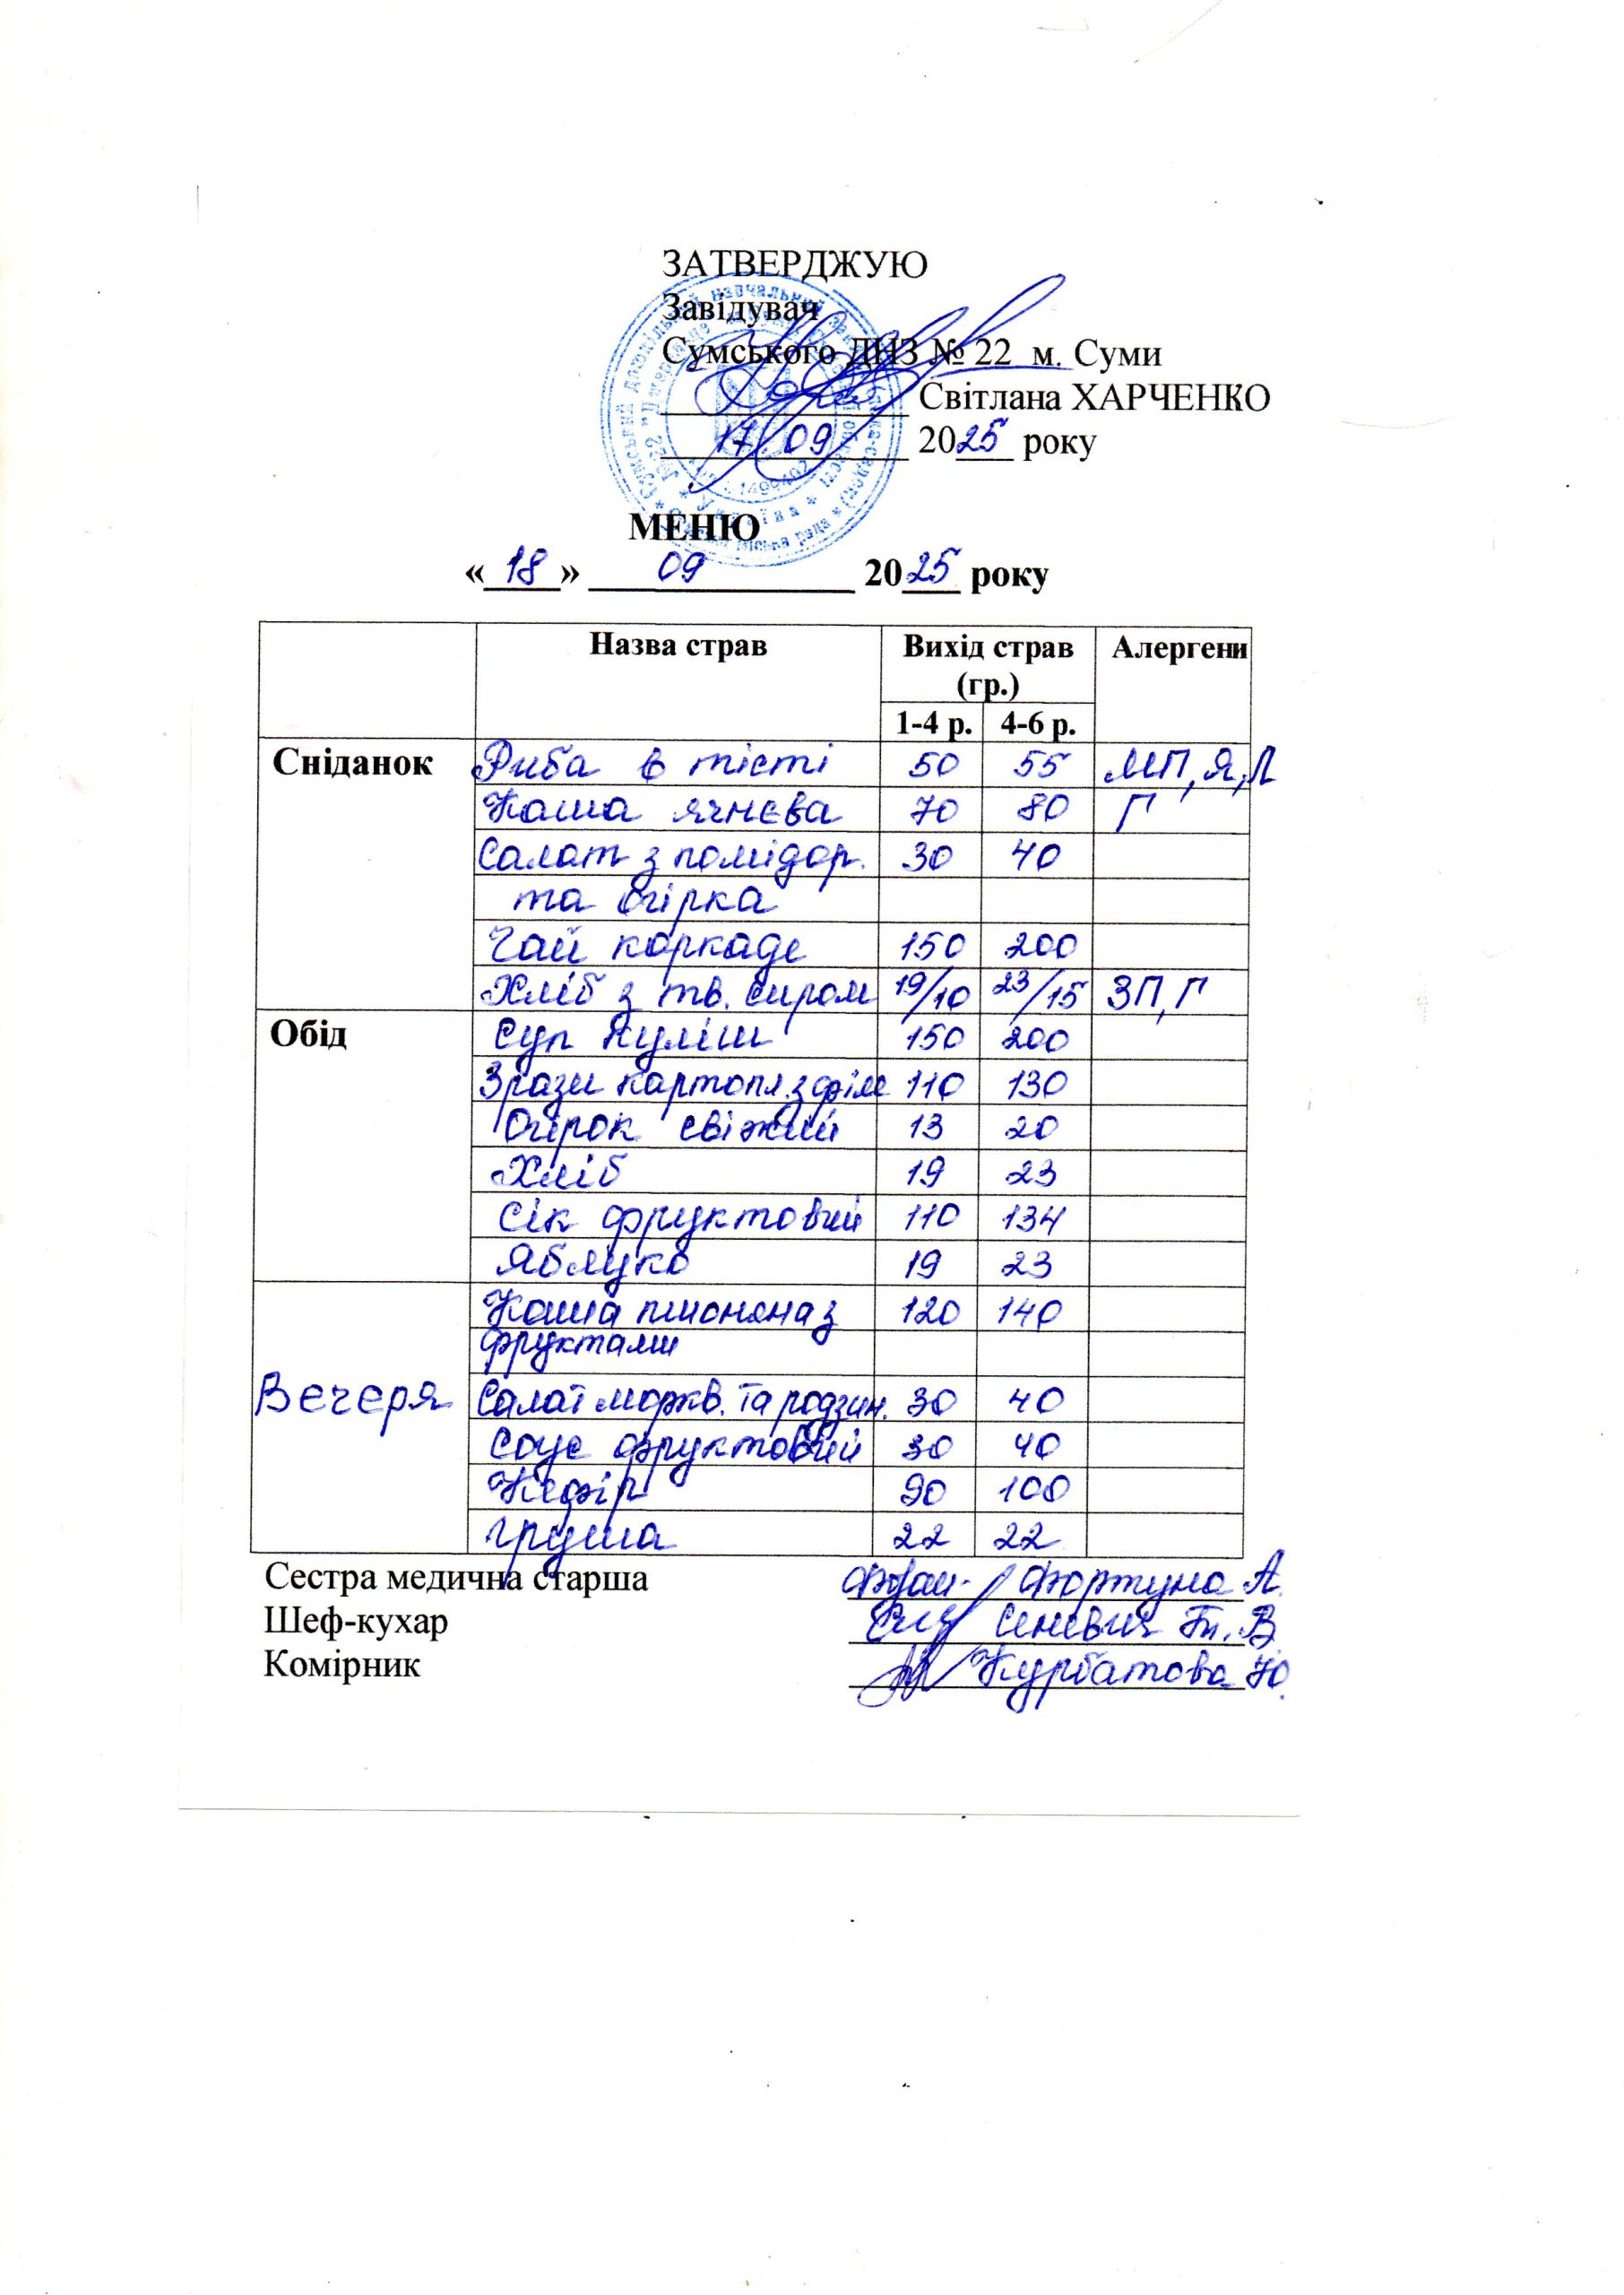 ЗАТВЕРДЖУЮ
Завідувач
Сумського ДНЗ № 22 м. Суми
Світлана ХАРЧЕНКО
17.09 2025 року
МЕНЮ
« 18 » 09 2025 року
Назва страв Вихід страв (гр.) Алергени
1-4 р. 4-6 р.
Сніданок Риба в тісті 50 55 МП, Я, Л
Каша ячнєва 70 80 Г
Салат з помідор. 30 40
та огірка
Чай каркаде 150 200
Хліб з тв. сиром 19/10 23/15 ЗП, Г
Обід Суп куліш 150 200
Зрази картопл. з філе 110 130
Огірок свіжий 13 20
Хліб 19 23
Сік фруктовий 110 134
Яблуко 19 23
Каша пшоняна з 120 140
фруктами
Вечеря Салат моркв. та родзин. 30 40
Соус фруктовий 30 40
Кефір 90 100
груша 22 22
Сестра медична старша Фортуна А.
Шеф-кухар В.
Комірник Курбатова Ю.